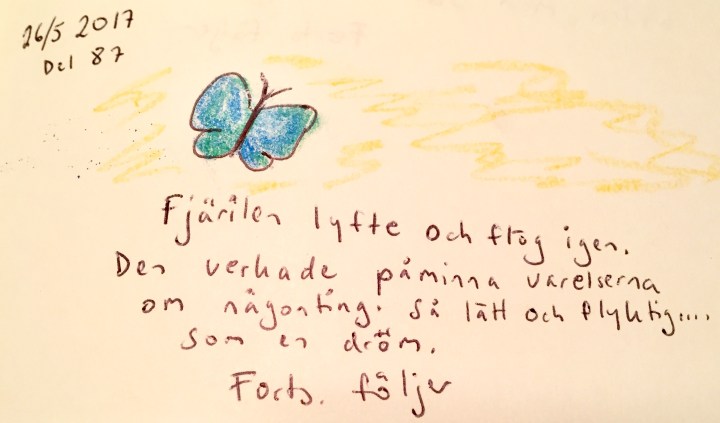 26/5 2017
Del 87
Fjärilen lyfte och flög igen.
Den verkade påminna varelserna
om någonting. Så lätt och flyktig....
som en dröm.
Forts. följer